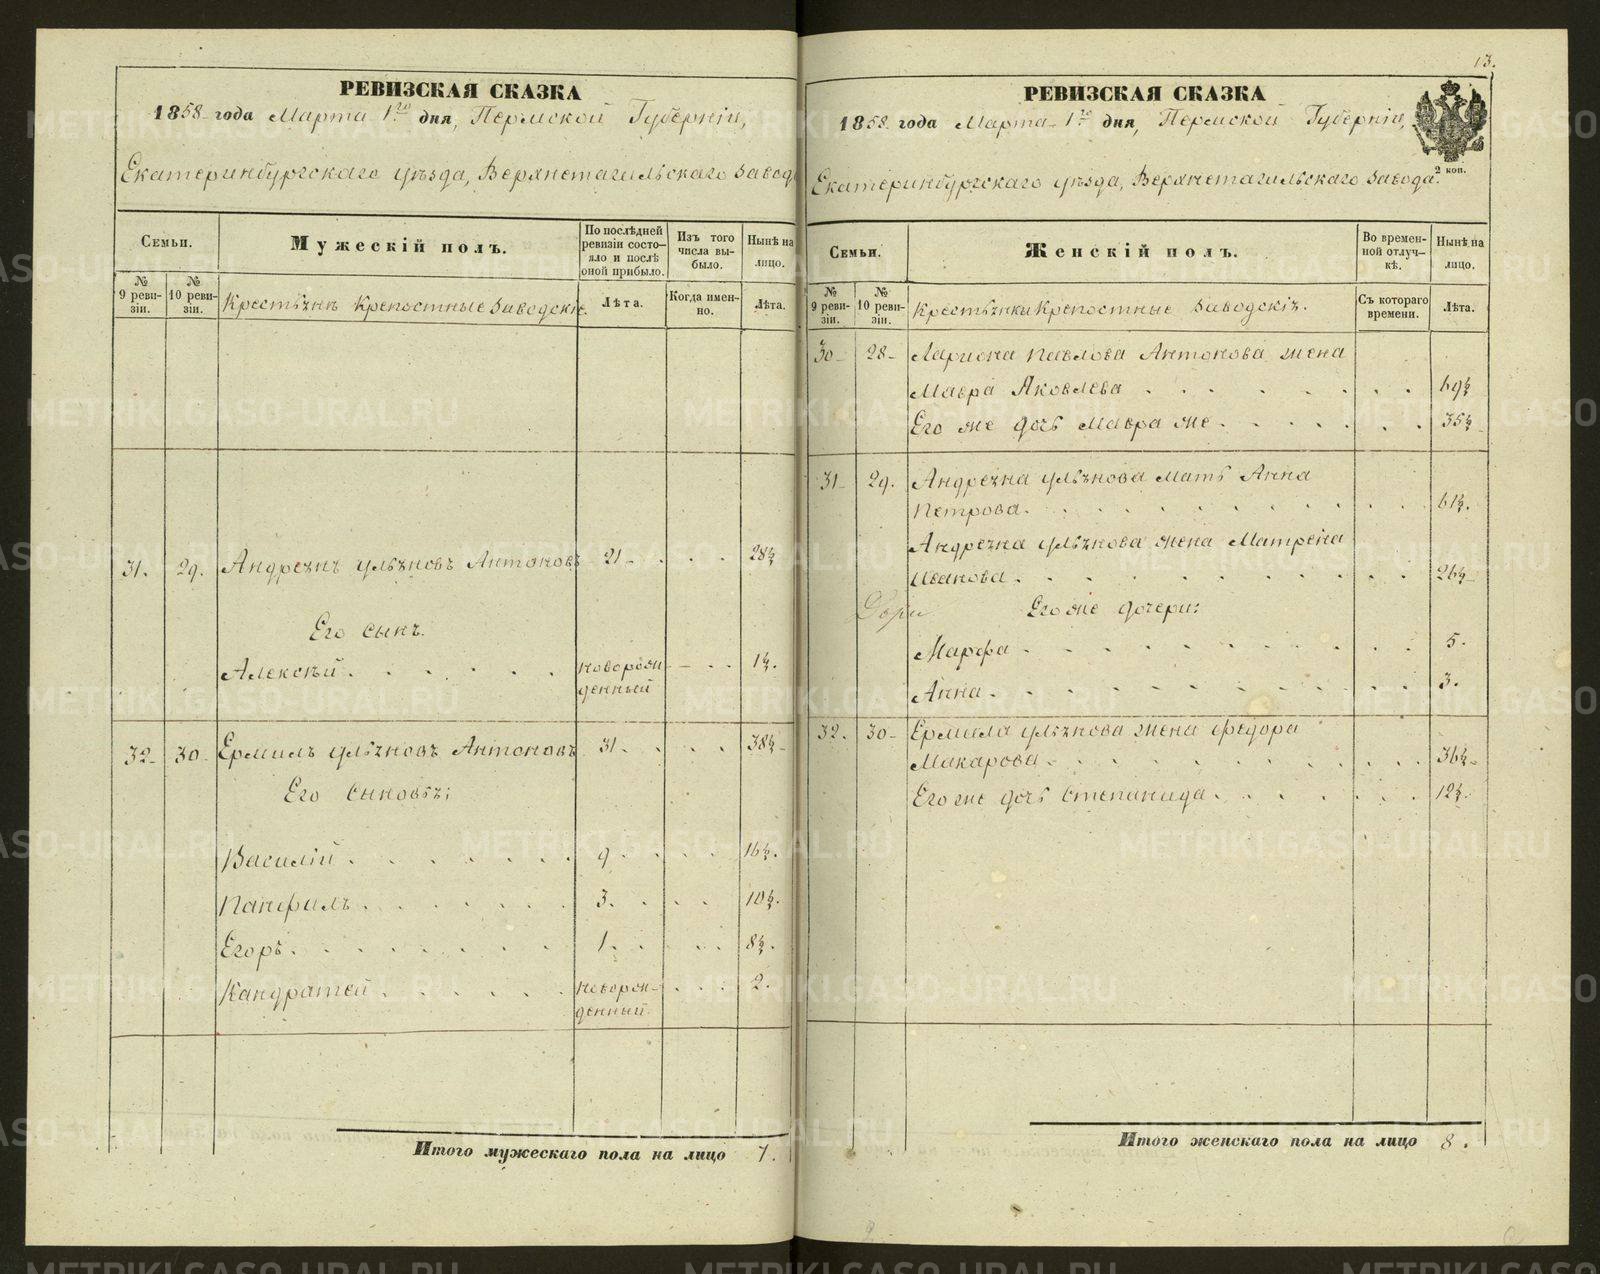 РЕВИЗСКАЯ СКАЗКА
1858 года Марта 1го дня, Пермской Губернiи,
Екатеринбургскаго уѣзда, Верхнетагильскаго Завода
Семьи.
Мужескiй полъ.
По послѣдней ревизiи состояло и послѣ оной прибыло.
Изъ того числа выбыло.
Нынѣ на лицо.
№ 9 ревизiи.
№ 10 ревизiи.
Крестьянъ Крепостные Заводскiе.
Лѣта.
Когда именно.
Лѣта.
31. 29. Андреянъ Ульяновъ Антоновъ 21 28½
Его сынъ.
Алексѣй новорожденный 1½.
32 30 Ермилъ Ульяновъ Антоновъ 31 38½
Его сыновья:
Василiй 9 16½.
Панфилъ 3. 10½.
Егоръ 1 8½.
Кандратей новорожденный 2.
Итого мужескаго пола на лицо 7.
13.
РЕВИЗСКАЯ СКАЗКА
1858 года Марта 1го дня, Пермской Губернiи,
Екатеринбургскаго уѣзда, Верхнетагильскаго Завода.
2 коп.
Семьи.
Женскiй полъ.
Во временной отлучкѣ.
Нынѣ на лицо.
№ 9 ревизiи.
№ 10 ревизiи.
Крестьянки Крепостные Заводскiя.
Съ котораго времени.
Лѣта.
30 28 Лариона Павлова Антонова жена
Мавра Яковлева 69½
Его же дочь Мавра же 35½
31 29. Андреяна Ульянова мать Анна
Петрова. 61½.
Андреяна Ульянова жена Матрена
Иванова. 26½
Его же дочери:
Марфа 5.
Анна. 3.
32. 30 Ермила Ульянова жена Федора
Макарова 36½
Его же дочь Степанида. 12½.
Итого женскаго пола на лицо 8.
METRIKI.GASO-URAL.RU